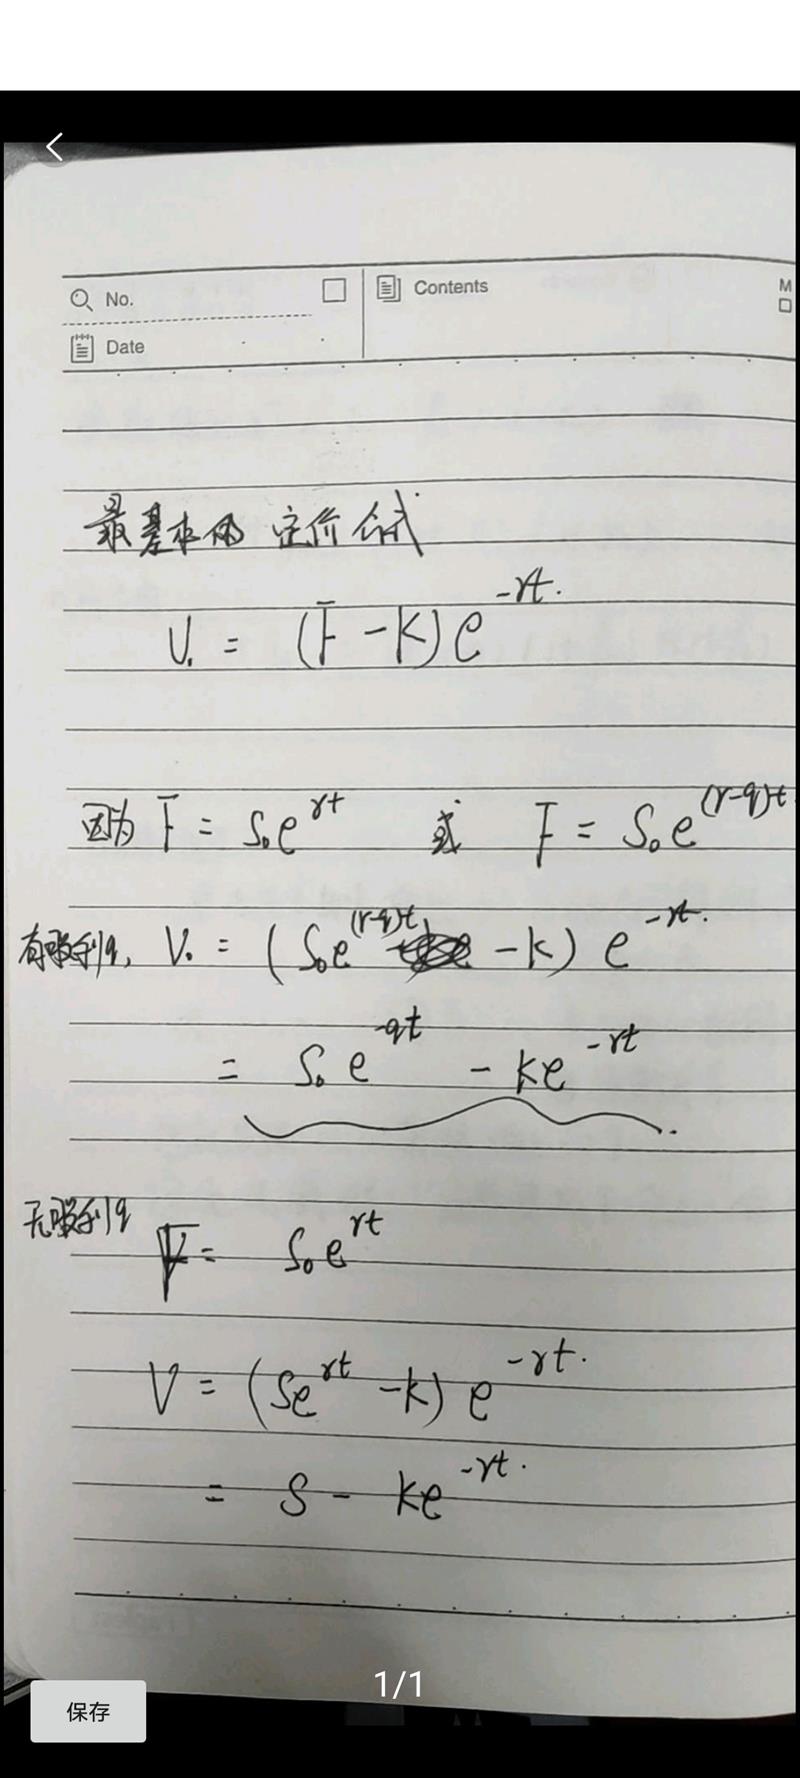 No.
Contents
M
Date
最基本的 定价公式
V. = (F - K) e^{-rt}.
因为 F = S₀e^{rt} 或 F = S₀e^{(r-q)t}
有股利q, V₀ = (S₀e^{(r-q)t} - k) e^{-rt}.
= S₀e^{-qt} - ke^{-rt}.
无股利q
F = S₀e^{rt}
V = (Se^{rt} - k) e^{-rt}.
= S - ke^{-rt}.
1/1
保存